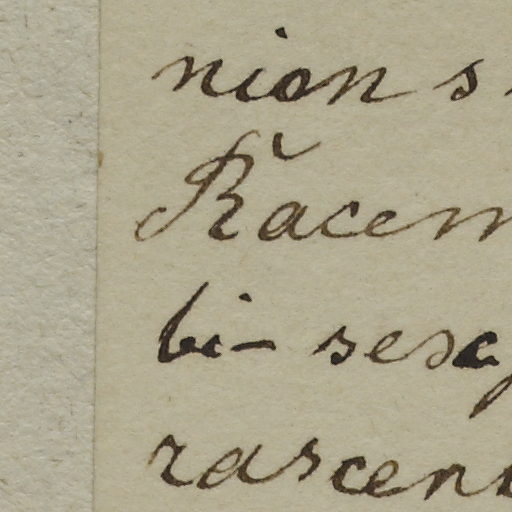 nion s
Racem
bi- sesq
rascent